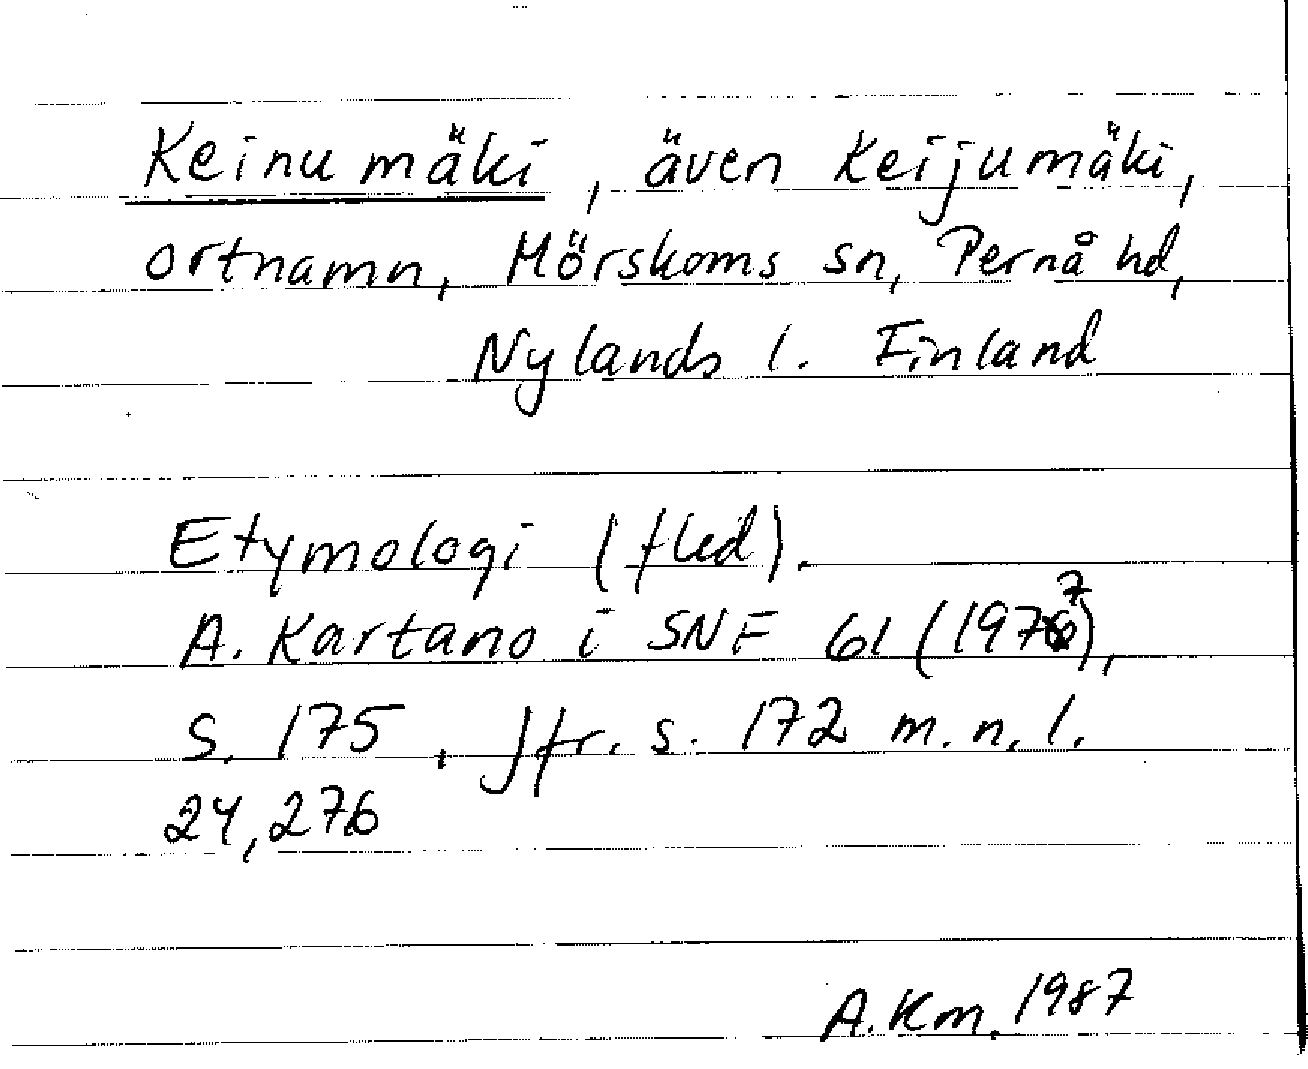 Keinumäki, även Keijumäki,
ortnamn, Mörskoms sn, Pernå hd,
Nylands l. Finland
Etymologi (fled).
A. Kartano i SNF 61 (1977),
s. 175, Jfr. s. 172 m. n. l.
24,276
A.Km. 1987